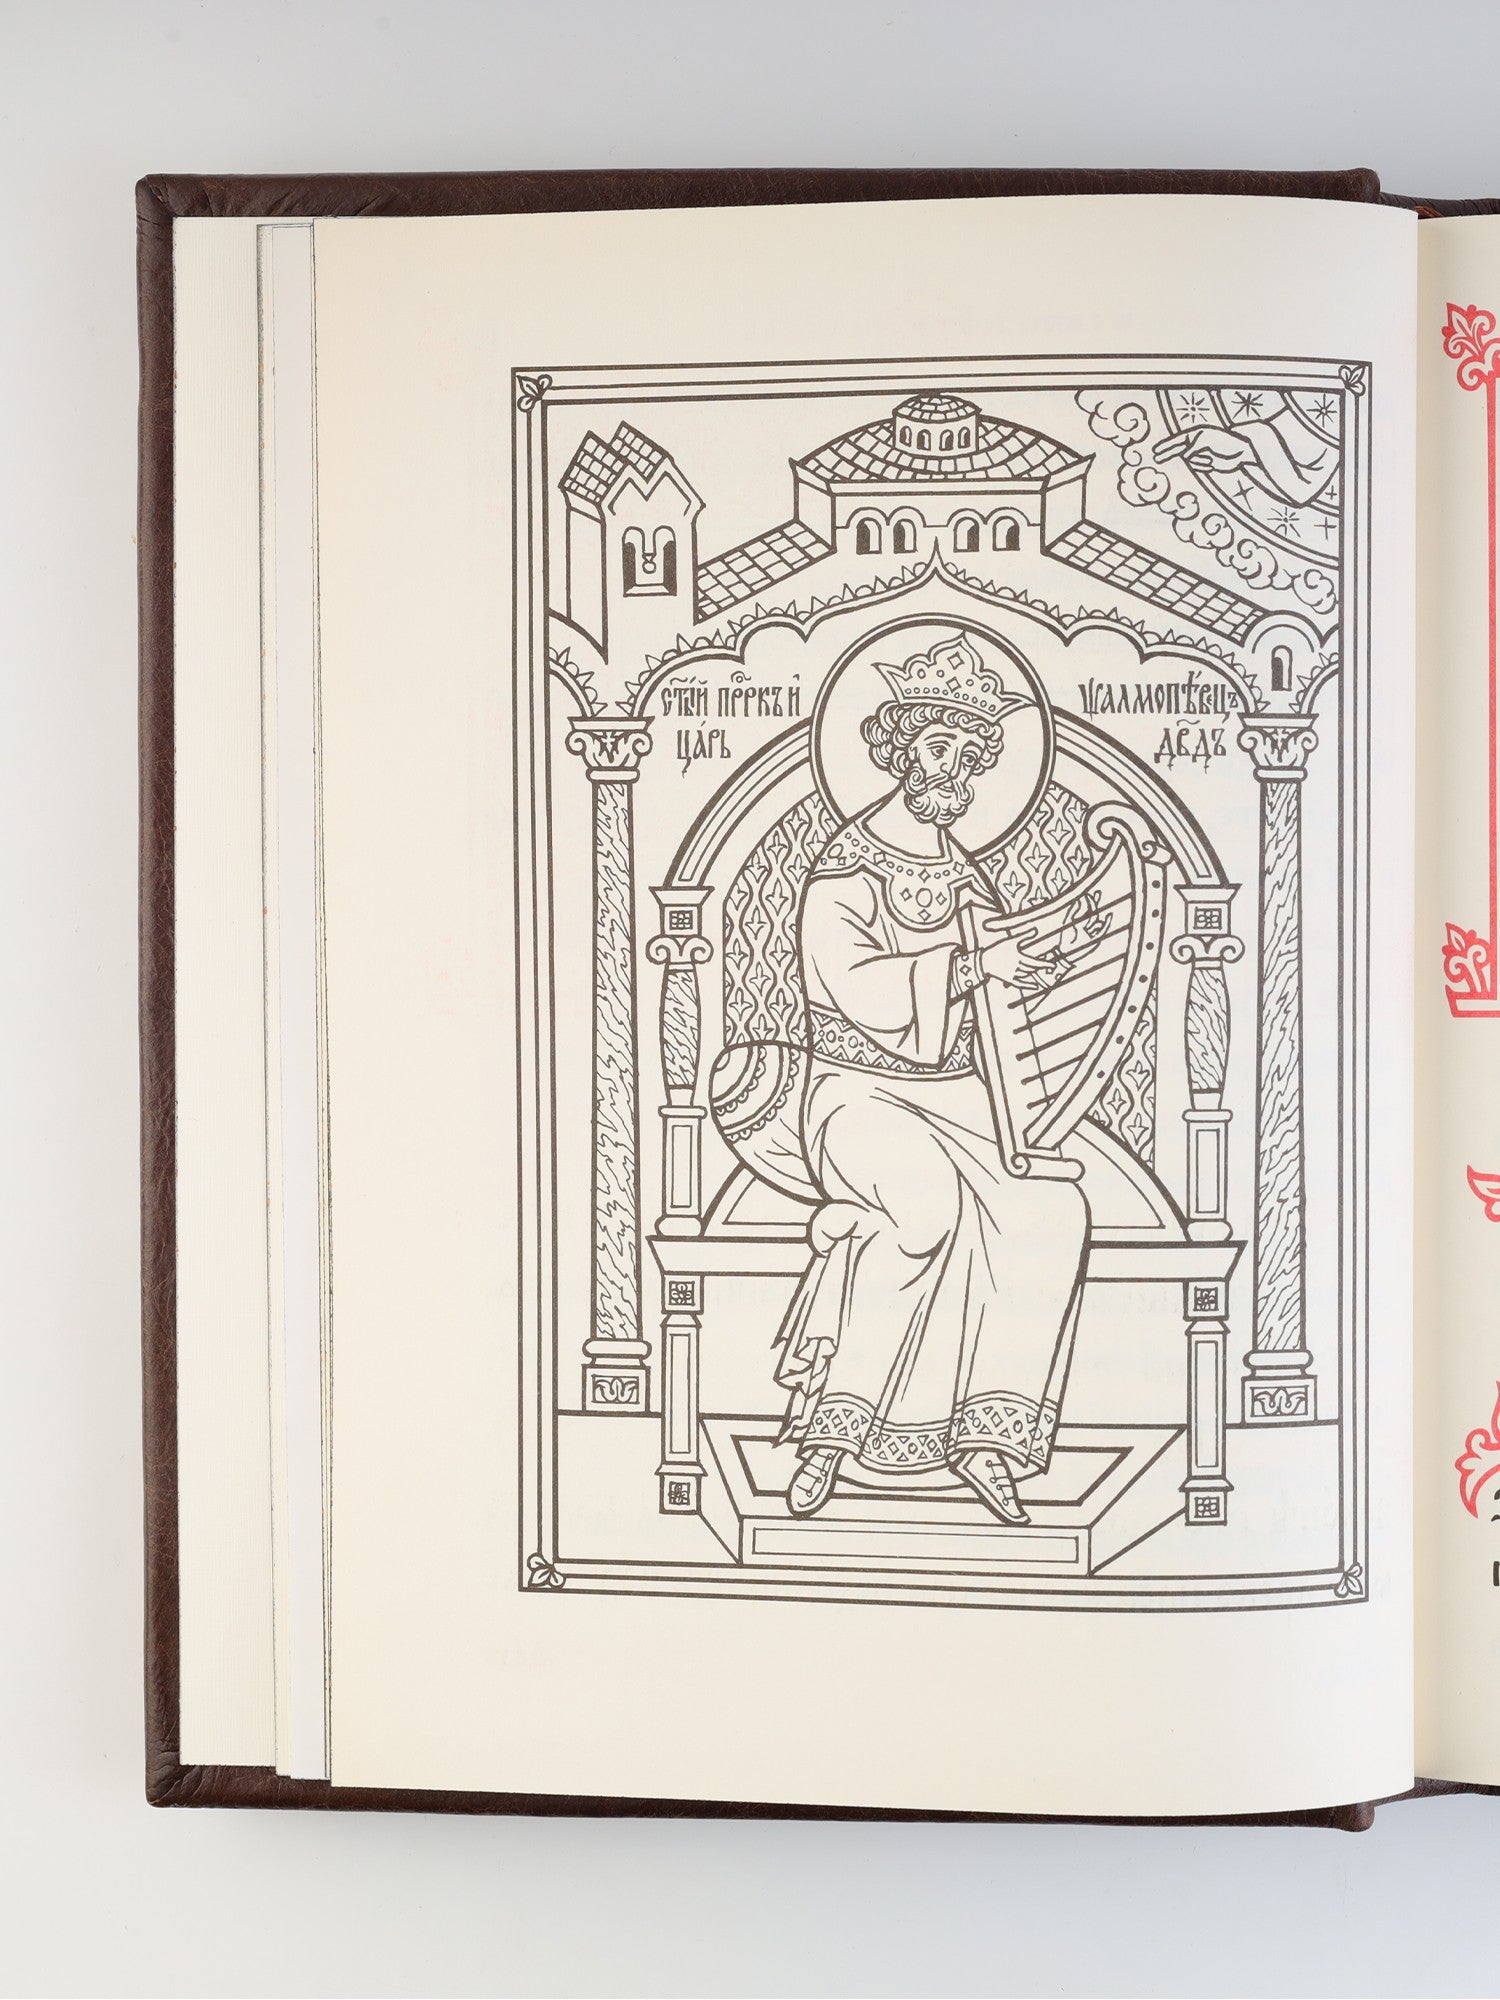 ст҃ы́й прⷪ҇ро́къ и҆
ца́рь
ѱалмопѣ́вецъ
дв҃дъ